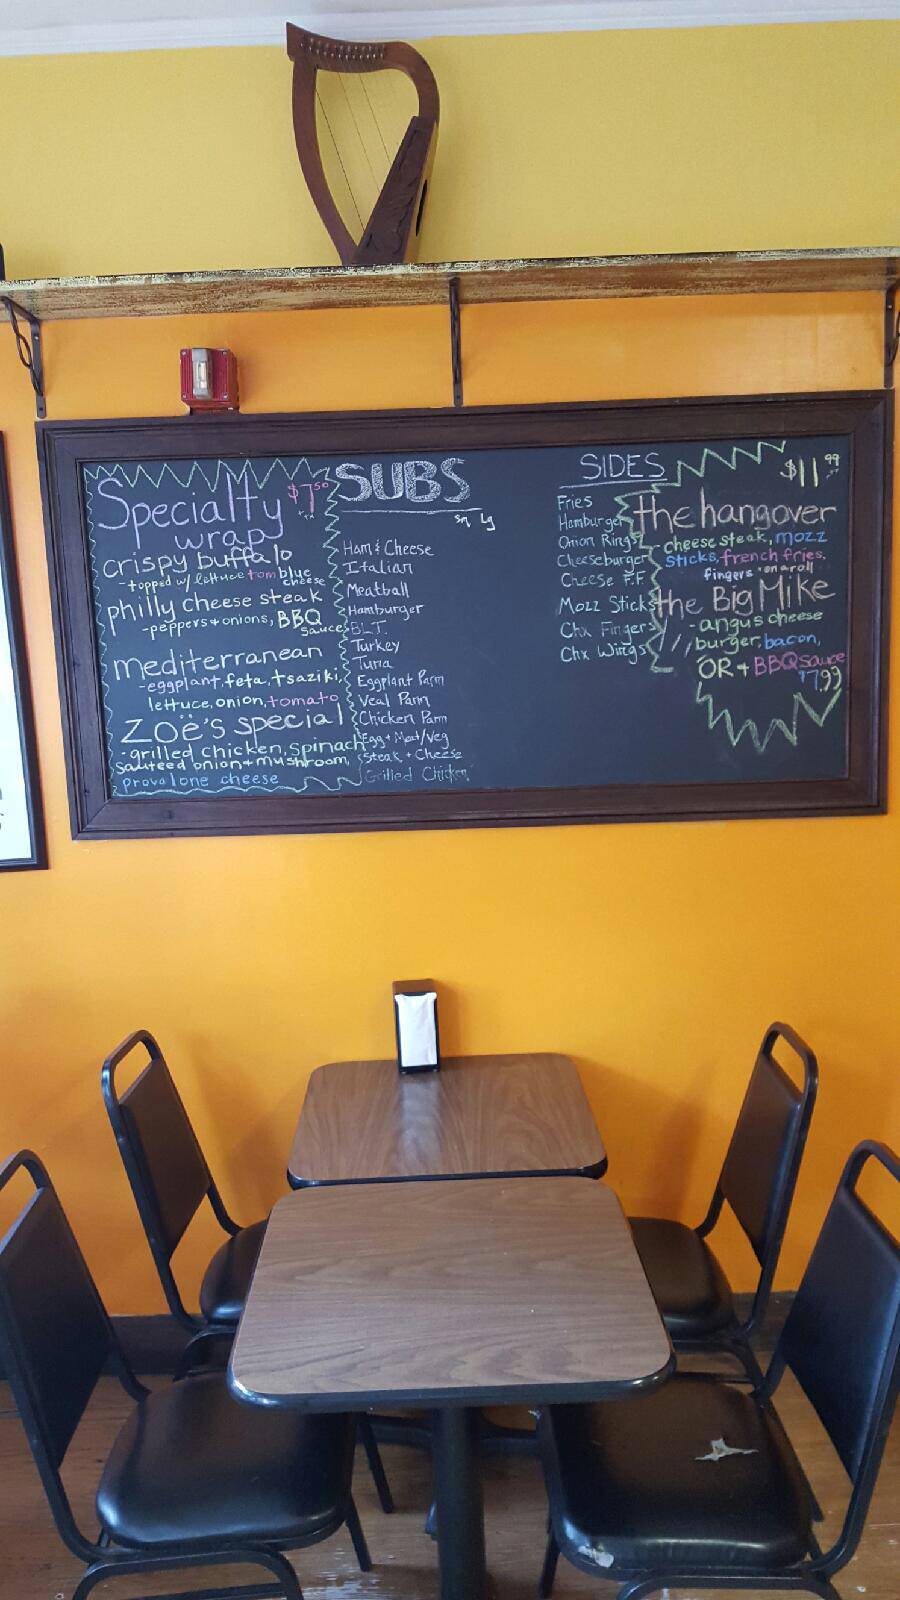 Specialty $7.50
wrap
crispy buffalo
-topped w/ lettuce tom blue
cheese
philly cheese steak
-peppers + onions, BBQ
sauce
mediterranean
-eggplant, feta, tsaziki,
lettuce, onion, tomato
Zoë's special
-grilled chicken, spinach
sauteed onion + mushroom,
provalone cheese
SUBS
Sm Lg
Ham & Cheese
Italian
Meatball
Hamburger
BLT.
Turkey
Tuna
Eggplant Parm
Veal Parm
Chicken Parm
Egg + Meat/Veg
Steak + Cheese
Grilled Chicken
SIDES
Fries
Hamburger
Onion Rings
Cheeseburger
Cheese F.F
Mozz Sticks
Chx Fingers
Chx Wings
$11.99
the hangover
cheese steak, mozz
sticks, french fries,
fingers on a roll
the Big Mike
-angus cheese
burger, bacon,
OR + BBQ sauce
$7.99